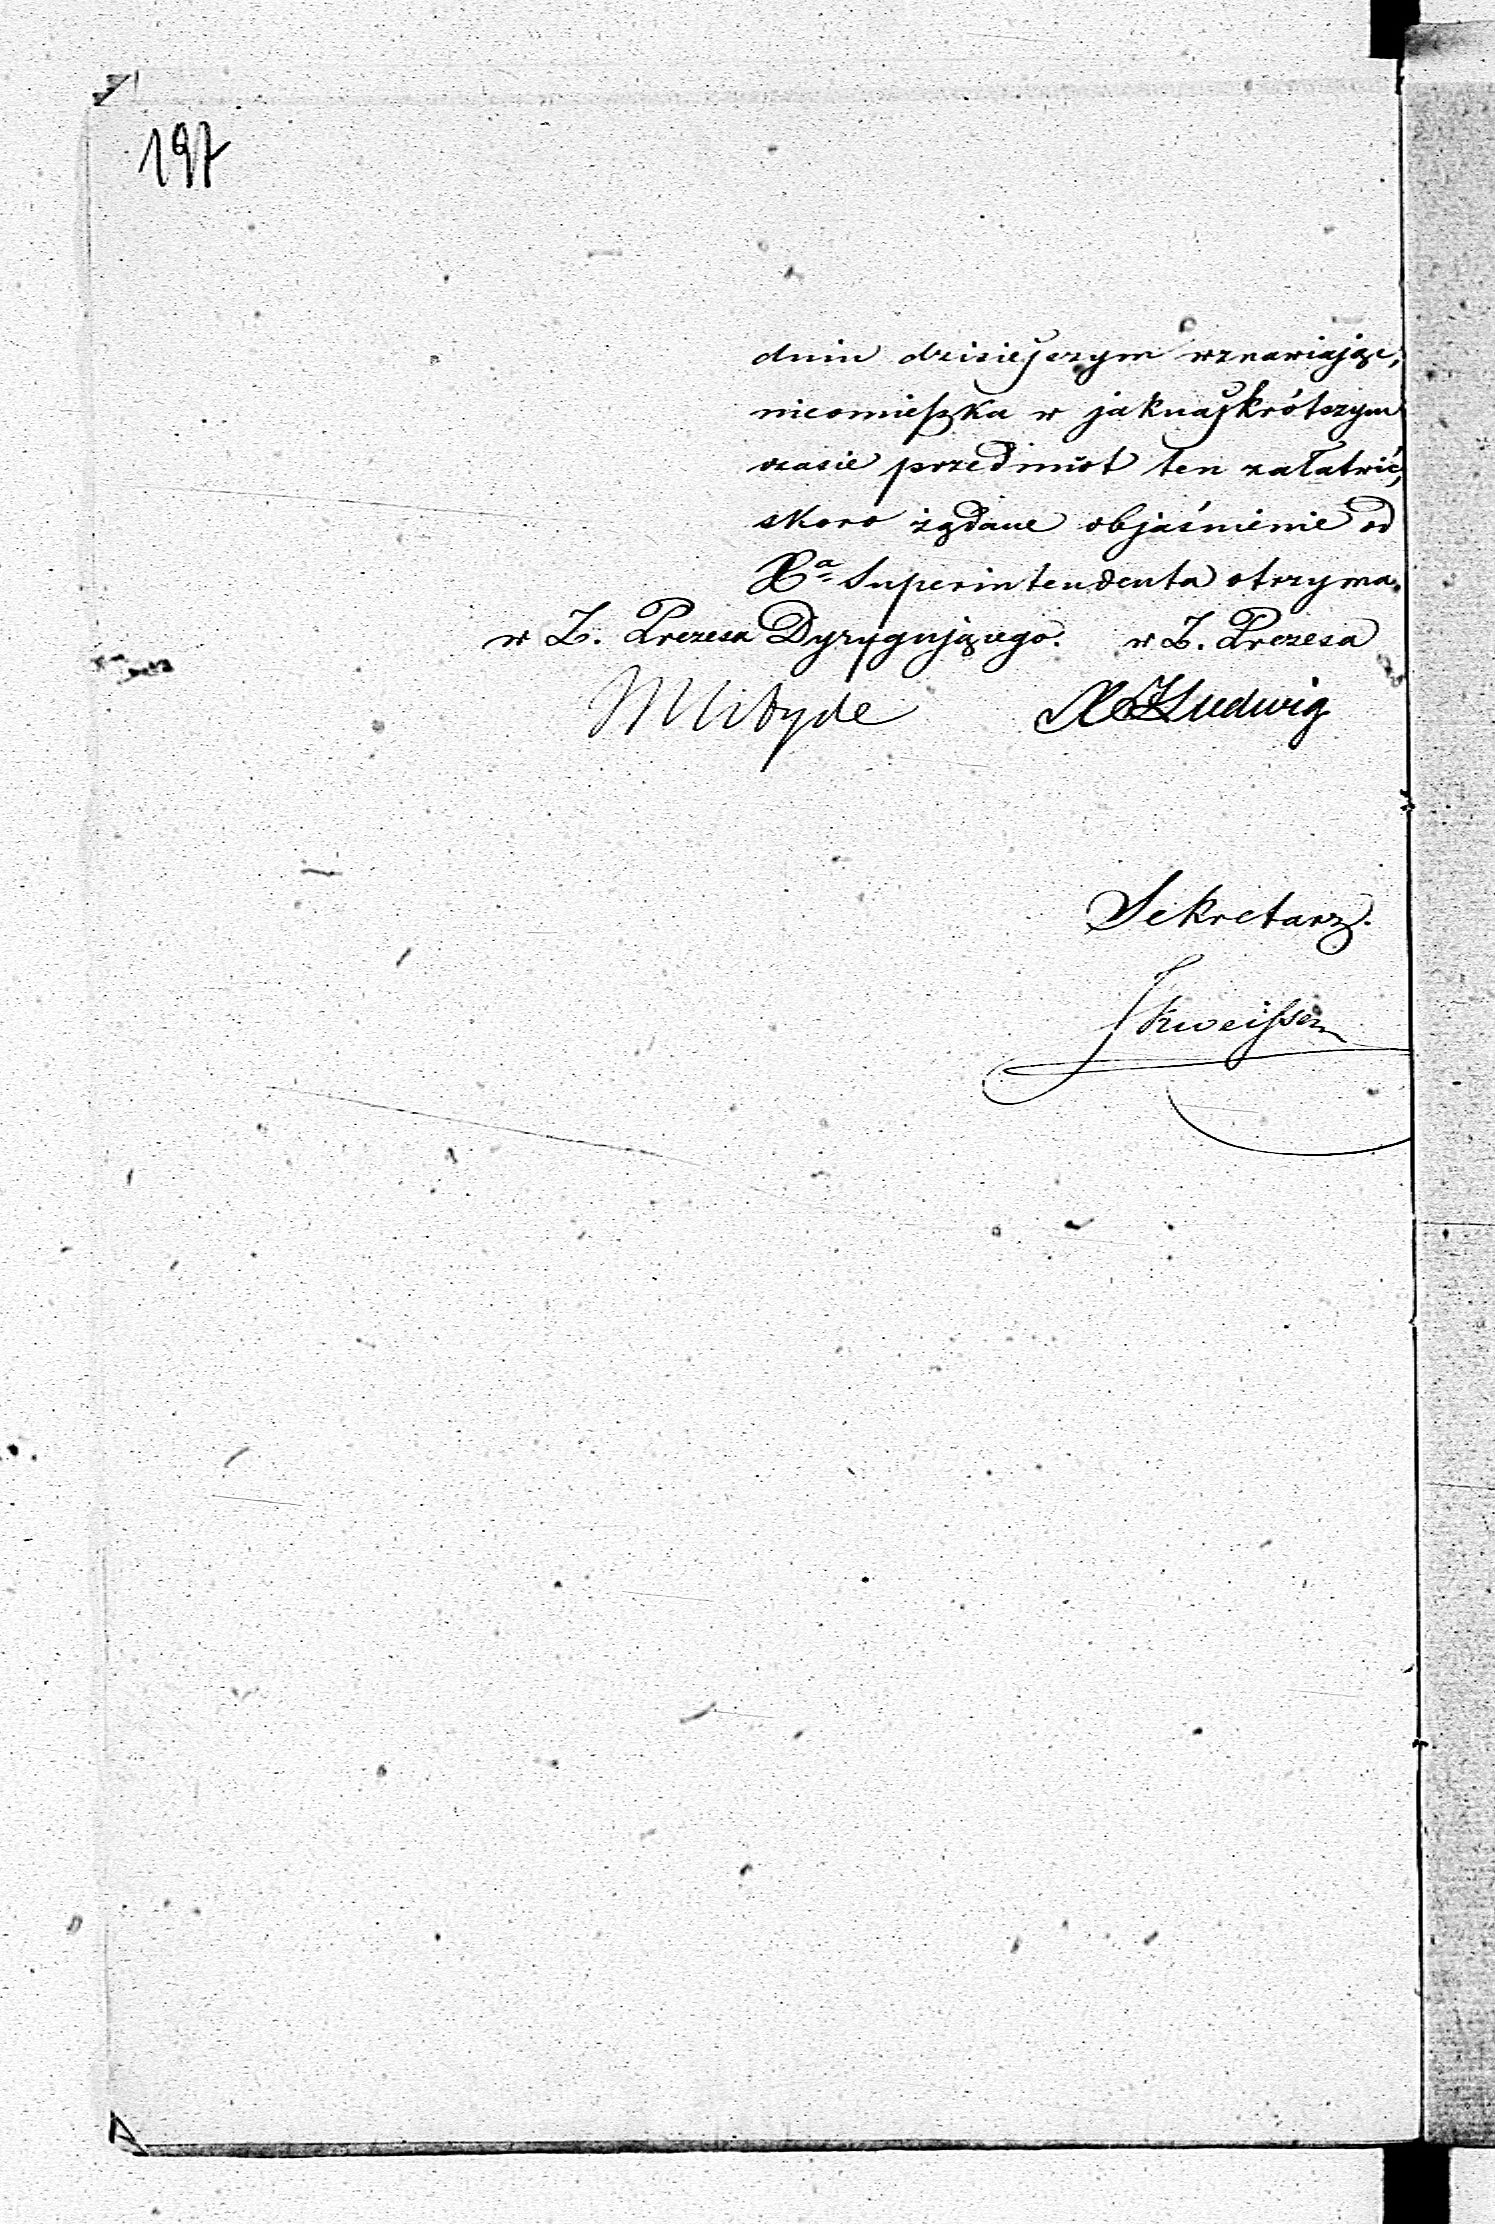 197
dniu dzisiejszym wznawiając,
nieomieszka w jaknajkrótszym
czasie przedmiot ten załatwić,
skoro żądane objaśnienie od
Xa Superintendenta otrzyma.
w Z. Prezesa Dyrygującego. w Z. Prezesa
Ludwig
Sekretarz.